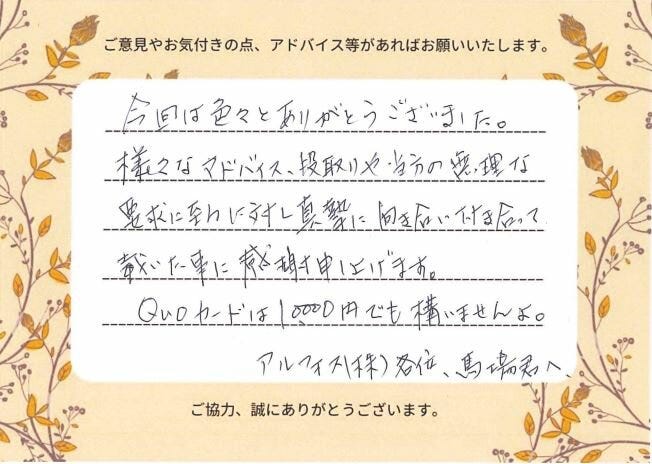 ご意見やお気付きの点、アドバイス等があればお願いいたします。
今回は色々とありがとうございました。
様々なアドバイス、段取りや当方の無理な
要求に至りに対し真摯に向き合い付き合って
戴いた事に感謝申し上げます。
QUOカードは10,000円でも構いませんよ。
アルフィス(株)各位、馬場君へ、
ご協力、誠にありがとうございます。